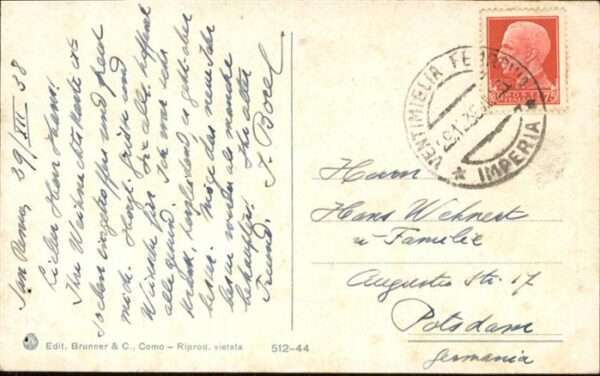 San Remo, 29/XII 38
Lieber Herr Hans!
Ihre Weihnachtskarte ist
soeben eingetroffen und freut
mich. Herzl. Grüße und
Wünsche für Sie alle. Hoffent.
alle gesund. Ich war sehr
krank, es geht aber
besser. Möge das neue Jahr
besser werden als manche
behaupten. Ihr alter
Freund. J. Borel
VENTIMIGLIA FERROVIA
* IMPERIA *
Herrn
Hans Wehnert
u. Familie
Augusta Str. 17
Potsdam
Germania
Edit. Brunner & C., Como – Riprod. vietata
512-44